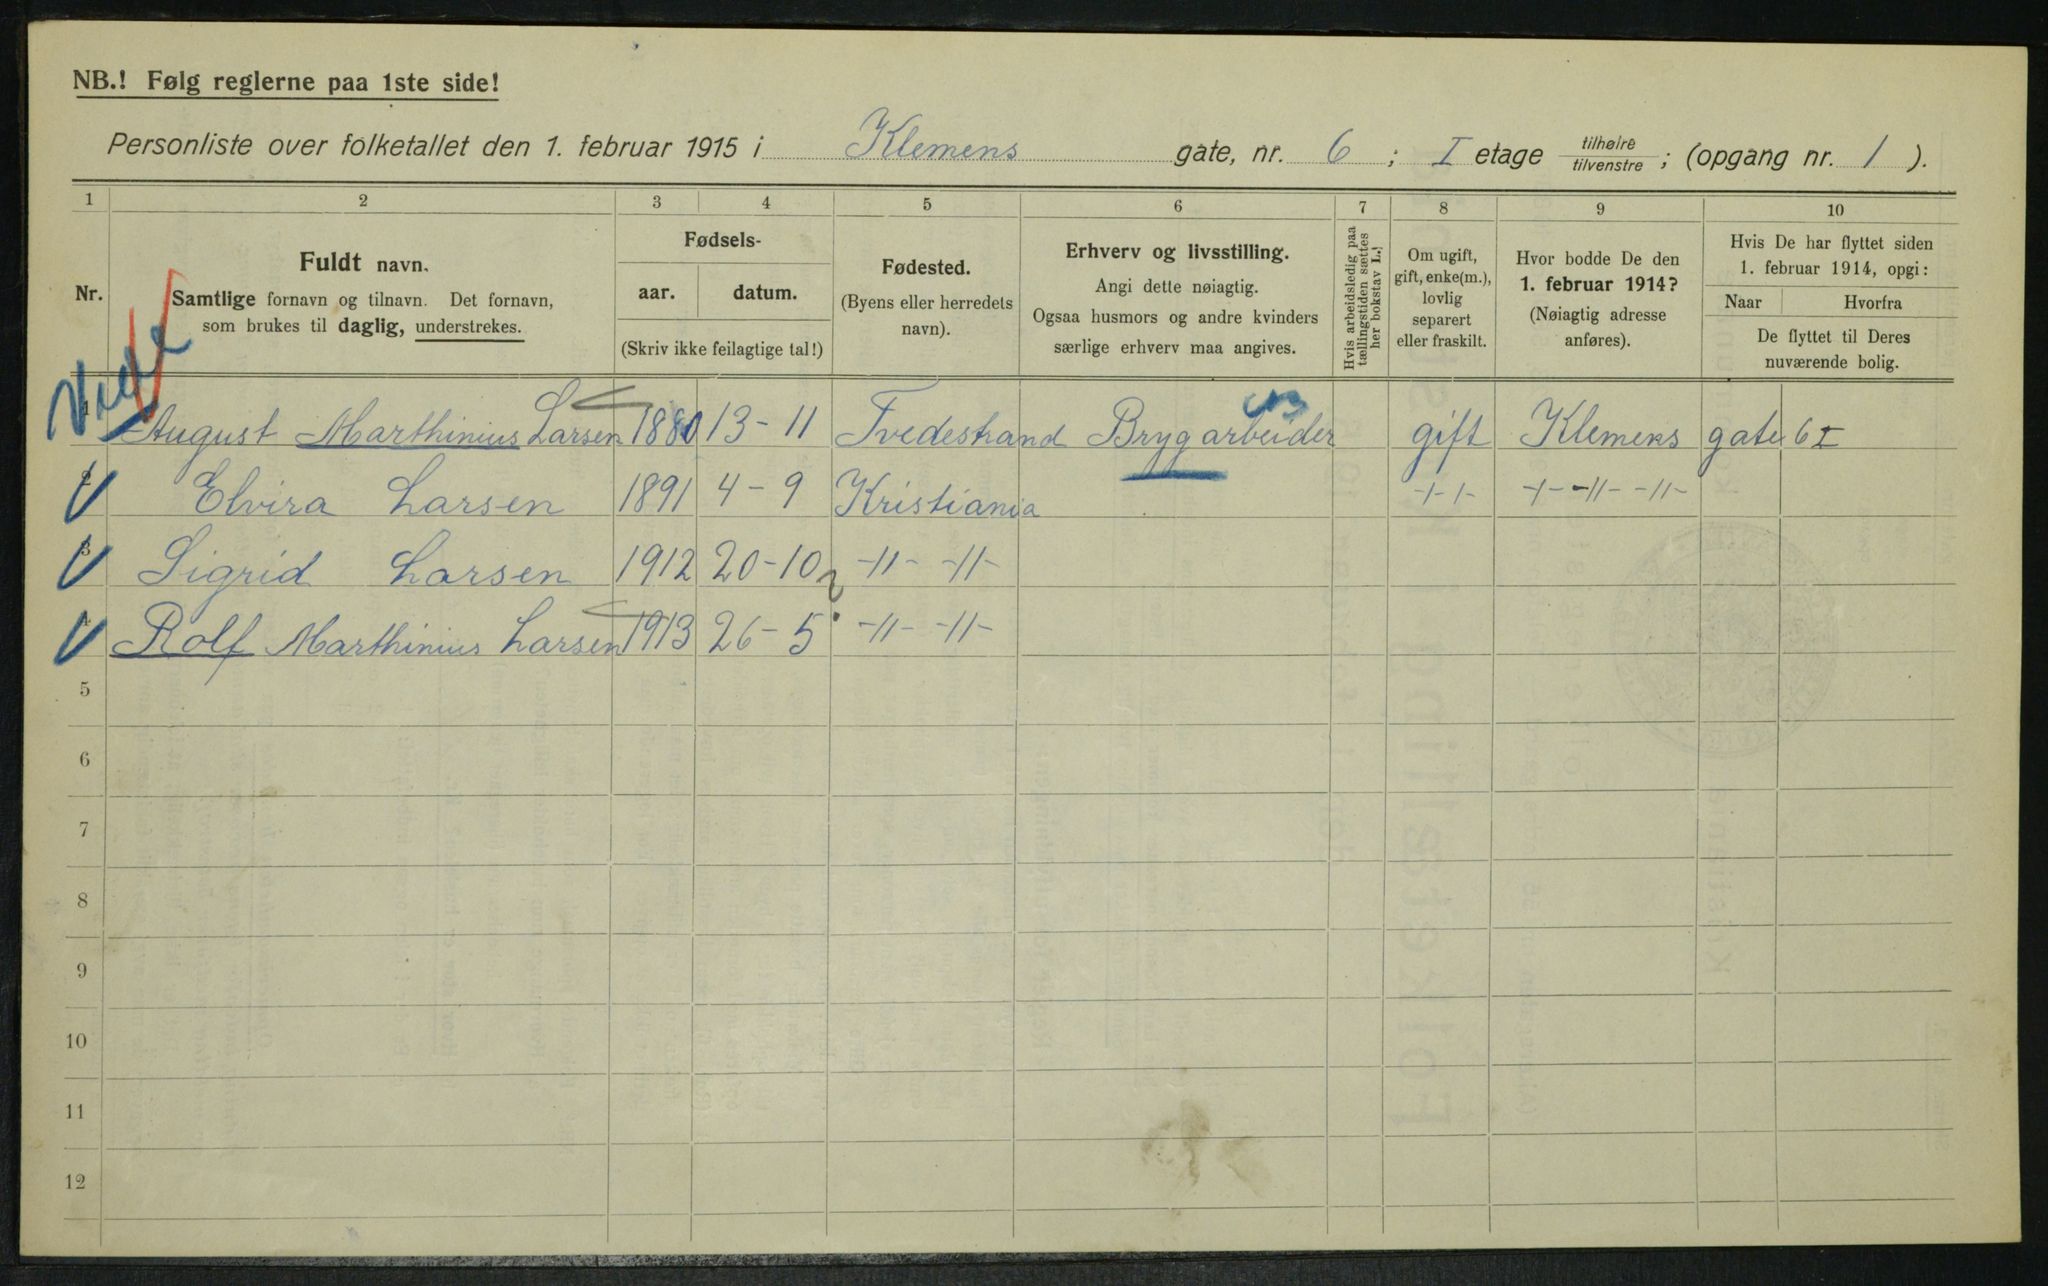 NB.! Følg reglerne paa 1ste side!
Personliste over folketallet den 1. februar 1915 i Klemens gate, nr. 6 ; I etage tilhøire/tilvenstre ; (opgang nr. 1 ).
1 2 3 4 5 6 7 8 9 10
Nr.
Fuldt navn.
Samtlige fornavn og tilnavn. Det fornavn,
som brukes til daglig, understrekes.
Fødsels-
aar. datum.
(Skriv ikke feilagtige tal!)
Fødested.
(Byens eller herredets
navn).
Erhverv og livsstilling.
Angi dette nøiagtig.
Ogsaa husmors og andre kvinders
særlige erhverv maa angives.
Hvis arbeidsledig paa
tællingstiden sættes
her bokstav L.
Om ugift,
gift, enke(m.),
lovlig
separert
eller fraskilt.
Hvor bodde De den
1. februar 1914?
(Nøiagtig adresse
anføres).
Hvis De har flyttet siden
1. februar 1914, opgi:
Naar Hvorfra
De flyttet til Deres
nuværende bolig.
1 August Marthinius Larsen 1880 13-11 Tvedestrand Brygarbeider gift Klemens gate 6 I
2 Elvira Larsen 1891 4-9 Kristiania -|-|- -|- -||- -||-
3 Sigrid Larsen 1912 20-10 -||- -||-
4 Rolf Marthinius Larsen 1913 26-5 -||- -||-
5
6
7
8
9
10
11
12